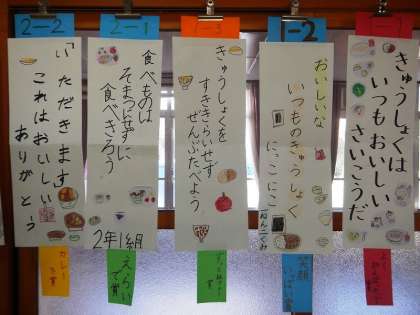 きゅうしょくは
いつもおいしい
さいこうだ
1-2
おいしいな
いつものきゅうしょく
にっこにこ
笑顔
いっぱい賞
きゅうしょくを
すききらいせず
ぜんぶたべよう
2-1
食べものは
そまつにせずに
食べきろう
2年1組
えらい
で賞
2-2
「いただきます」
これはおいしい
ありがとう
カレー
で賞